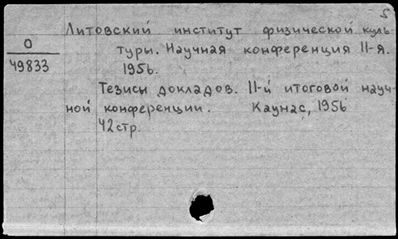 5
Литовский институт физической куль-
О
49833
туры. Научная конференция II-я.
1956.
Тезисы докладов. II-й итоговой науч-
ной конференции. Каунас, 1956
42стр.